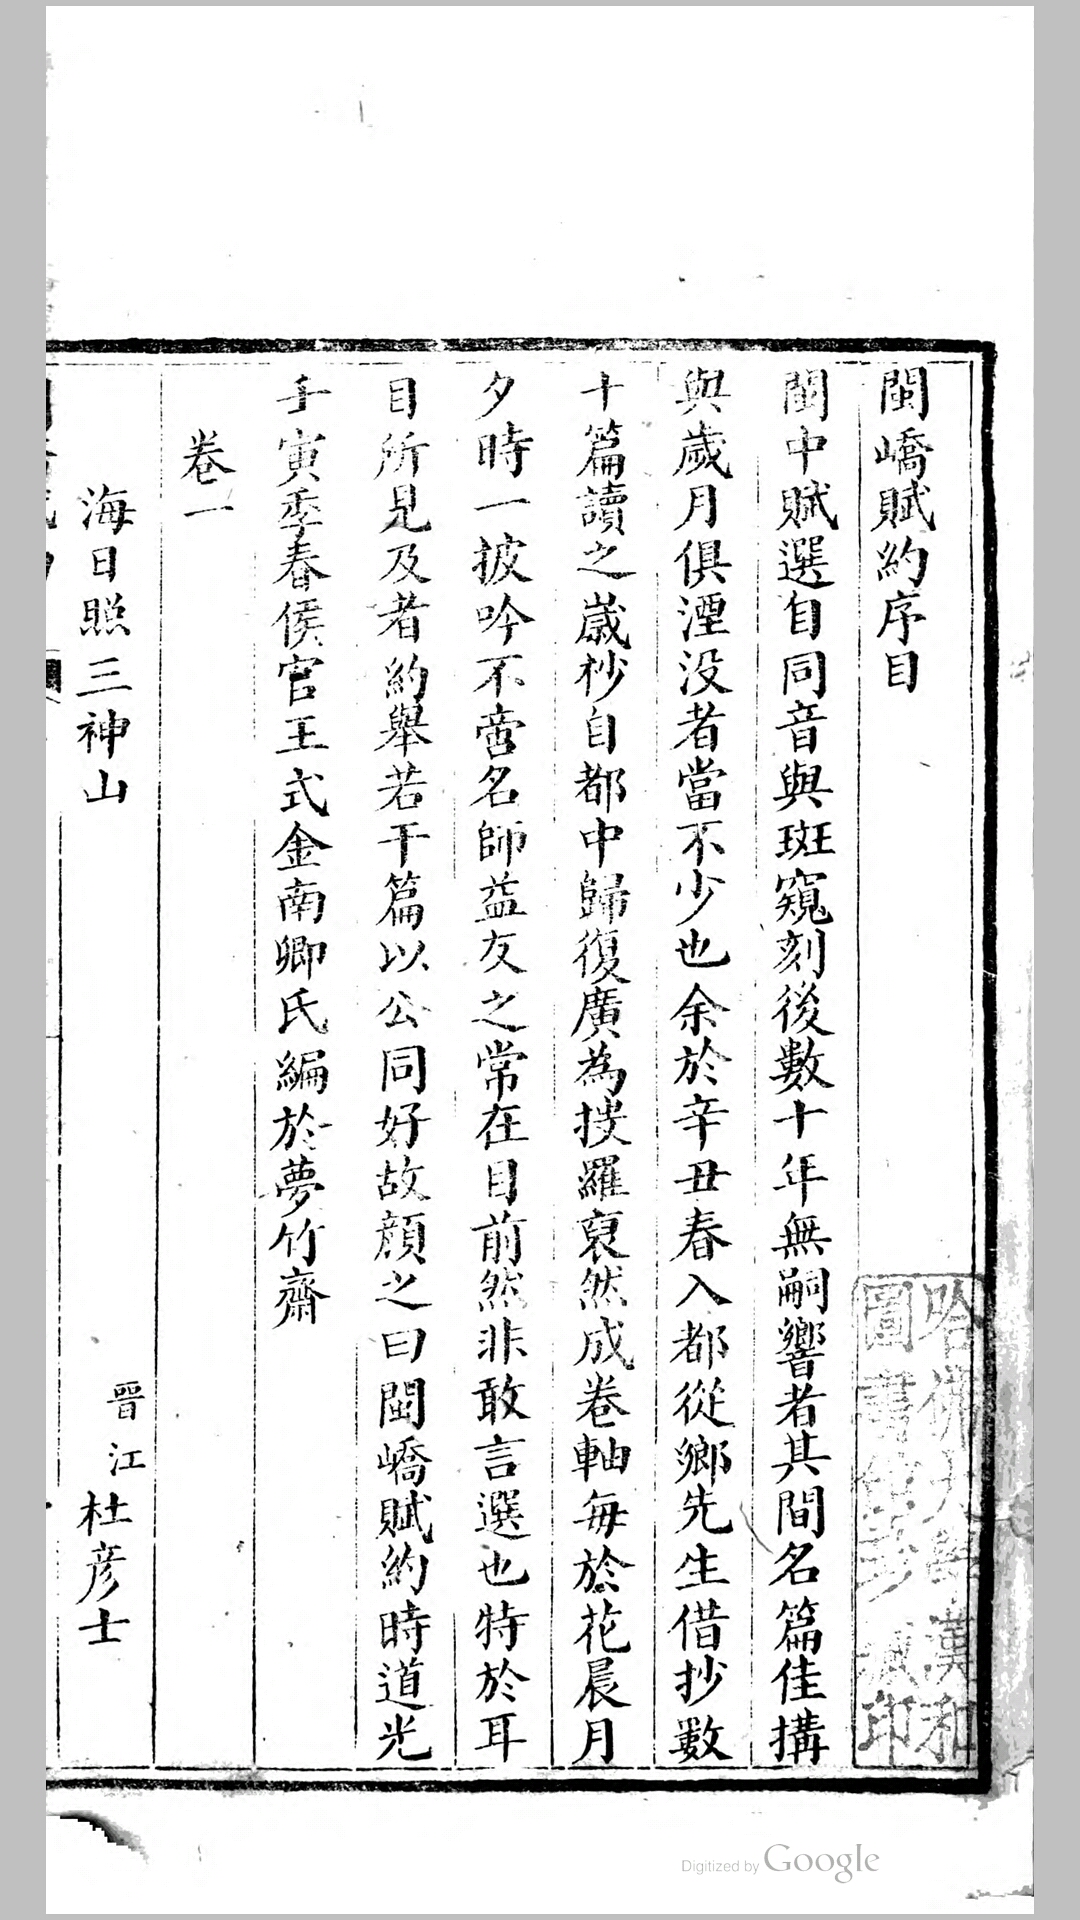 閩嶠賦約序目
閩中賦選自同音與斑窺刻後數十年無嗣響者其間名篇佳搆
與歲月俱湮没者當不少也余於辛丑春入都從鄉先生借抄數
十篇讀之嵗杪自都中歸復廣為搜羅裒然成卷軸每於花晨月
夕時一披吟不啻名師益友之常在目前然非敢言選也特於耳
目所見及者約舉若干篇以公同好故顔之曰閩嶠賦約時道光
壬寅季春侯官王式金南卿氏編於夢竹齋
卷一
海日照三神山
晉江杜彦士
哈佛大學漢和
圖書館珍藏印
Digitized by Google